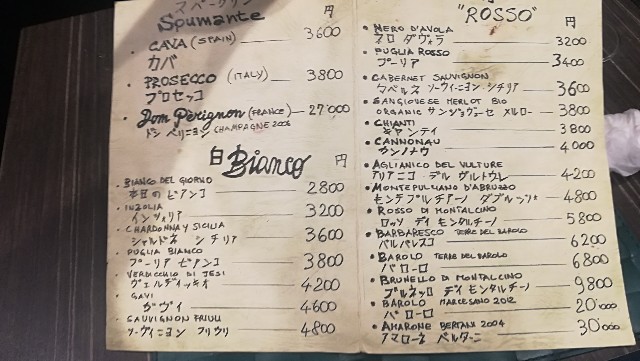 スパークリング
Spumante 円
• CAVA (SPAIN) 3600
カバ
• PROSECCO (ITALY) 3800
プロセッコ
• Dom Perignon (FRANCE) 27'000
ドン ペリニヨン CHAMPAGNE 2006
白 Bianco 円
• BIANCO DEL GIORNO 2800
本日の ビアンコ
• INZOLIA 3200
インツォリア
• CHARDONNAY SICILIA 3600
シャルドネ シチリア
• PUGLIA BIANCO 3800
プーリア ビアンコ
• VERDICCHIO DI JESI 4200
ヴェルディッキオ
• GAVI 4600
ガヴィ
• SAUVIGNON FRIULI 4800
ソーヴィニヨン フリウリ
"ROSSO" 円
• NERO D'AVOLA 3200
ネロ ダヴォラ
• PUGLIA ROSSO 3400
プーリア
• CABERNET SAUVIGNON 3600
カベルネ ソーヴィニヨン シチリア
• SANGIOVESE MERLOT BIO
ORGANIC サンジョヴェーゼ メルロー 3800
• CHIANTI 3800
キャンティ
• CANNONAU 4000
カンノナウ
• AGLIANICO DEL VULTURE 4200
アリアニコ デル ヴルトゥレ
• MONTEPULCIANO D'ABRUZZO 4800
モンテプルチアーノ ダブルッツォ
• ROSSO DI MONTALCINO 5800
ロッソ ディ モンタルチーノ
• BARBARESCO TERRE DEL BAROLO 6200
バルバレスコ
• BAROLO TERRE DEL BAROLO 6800
バローロ
• BRUNELLO DI MONTALCINO 9800
ブルネッロ ディ モンタルチーノ
• BAROLO MARCESANO 2012 20'000
バローロ
• AMARONE BERTANI 2004 30'000
アマローネ ベルターニ